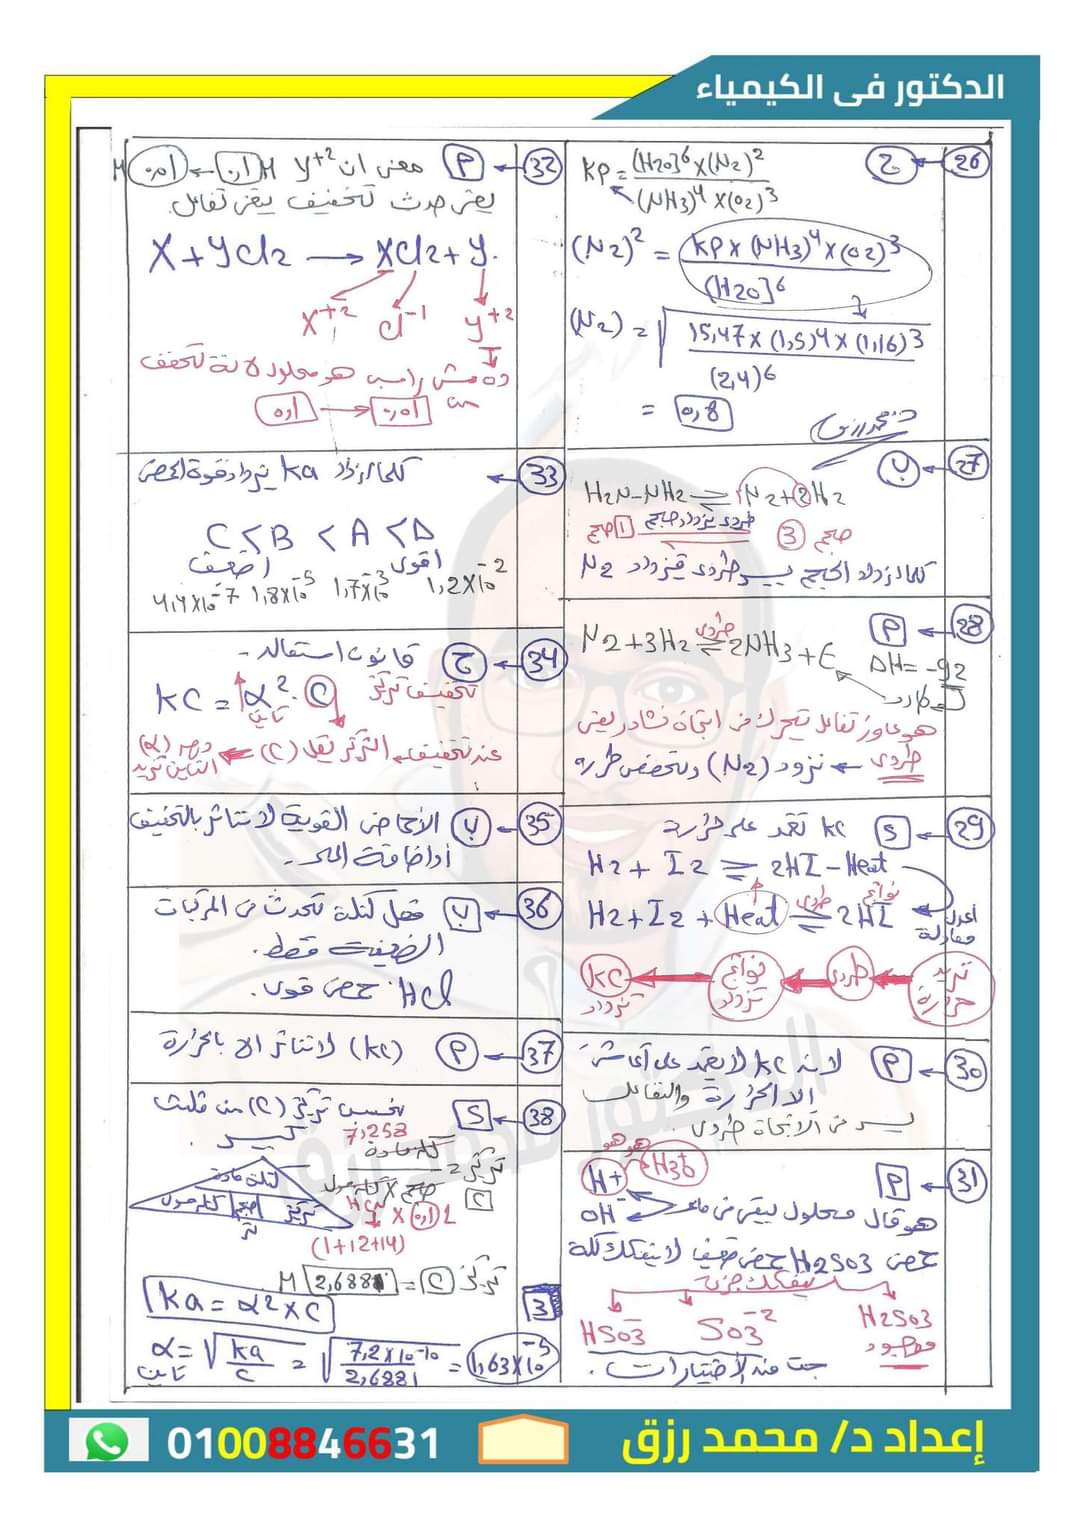 الدكتور فى الكيمياء
26 ← ج
KP = (H2O)6 x (N2)2 / (NH3)4 x (O2)3
(N2)2 = KP x (NH3)4 x (O2)3 / (H2O)6
(N2) = √ 15,47 x (1,5)4 x (1,16)3 / (2,4)6
= 0,8
27 ← ب
H2N-NH2 ⇌ N2 + 2H2
حجم 3
طردى يزداد حجم
1 حجم
كلما زداد الحجم يسير طردى فيزداد N2
28 ← P
N2 + 3H2 ⇌ 2NH3 + E
طردى
ΔH = -92
طارد
هو عاوز تفاعل يتحرك فى اتجاه نشادر يعنى
طردى ← نزود (N2) ونخفض حرارة
29 ← S
KC تعتمد على حرارة
H2 + I2 ⇌ 2HI - Heat
H2 + I2 + Heat ⇌ 2HI
طردى
نواتج
أعدل معادلة
تزيد حرارة ← طردى ← نواتج تزداد ← KC تزداد
30 ← P
لانه KC لا يعتمد على أى شئ
الا الحرارة والتفاعل
يسير فى الاتجاة طردى
31 ← P
H+ هو هو H3O+
OH-
هو قال محلول يبقى فى ماء
حمض H2SO3 حمض ضعيف لا يتفكك كلة
يتفكك جزئى
HSO3- SO3-2 H2SO3
موجود
جت منه الأختيارات.
32 ← P
معنى ان Y+2 M 0,1 ← 0,05 M
يعنى حدث تخفيف يبقى تفاعل.
X + YCl2 → XCl2 + Y.
X+2 Cl-1 Y+2
ده مش راسب هو محلول لانة تخفف
من
0,1 → 0,05
33 ←
كلما زداد Ka يزداد قوة الحمض
C < B < A < D
أضعف أقوى
4,4x10-7 1,8x10-5 1,7x10-3 1,2x10-2
34 ← ج
قانون استفالد -
KC = α2. C
تأين
تخفيف تركيز
عند تخفيف التركيز تقل (C) ← درجة (α) التأين تزيد
35 ← ب
الأحماض القوية لا تتأثر بالتخفيف
أو إضافة الماء -
36 ← ب
فعل كتلة تحدث فى المركبات
الضعيفة فقط.
HCl حمض قوى.
37 ← P
(KC) لا تتأثر الا بالحرارة
38 ← S
نحسب تركيز (C) من مثلث
كبير.
7,258
كتلة مادة
تركيز = حجم x كتلة مول
C
HCN
x 0,1 L
(1+12+14)
كتلة مادة
تركيز حجم كتلة مول
لتر
تركيز C = 2,6881 M
Ka = α2 x C
α = √ Ka / C = √ 7,2x10-10 / 2,6881 = 1,63x10-5
تأين
3
01008846631
إعداد د/ محمد رزق